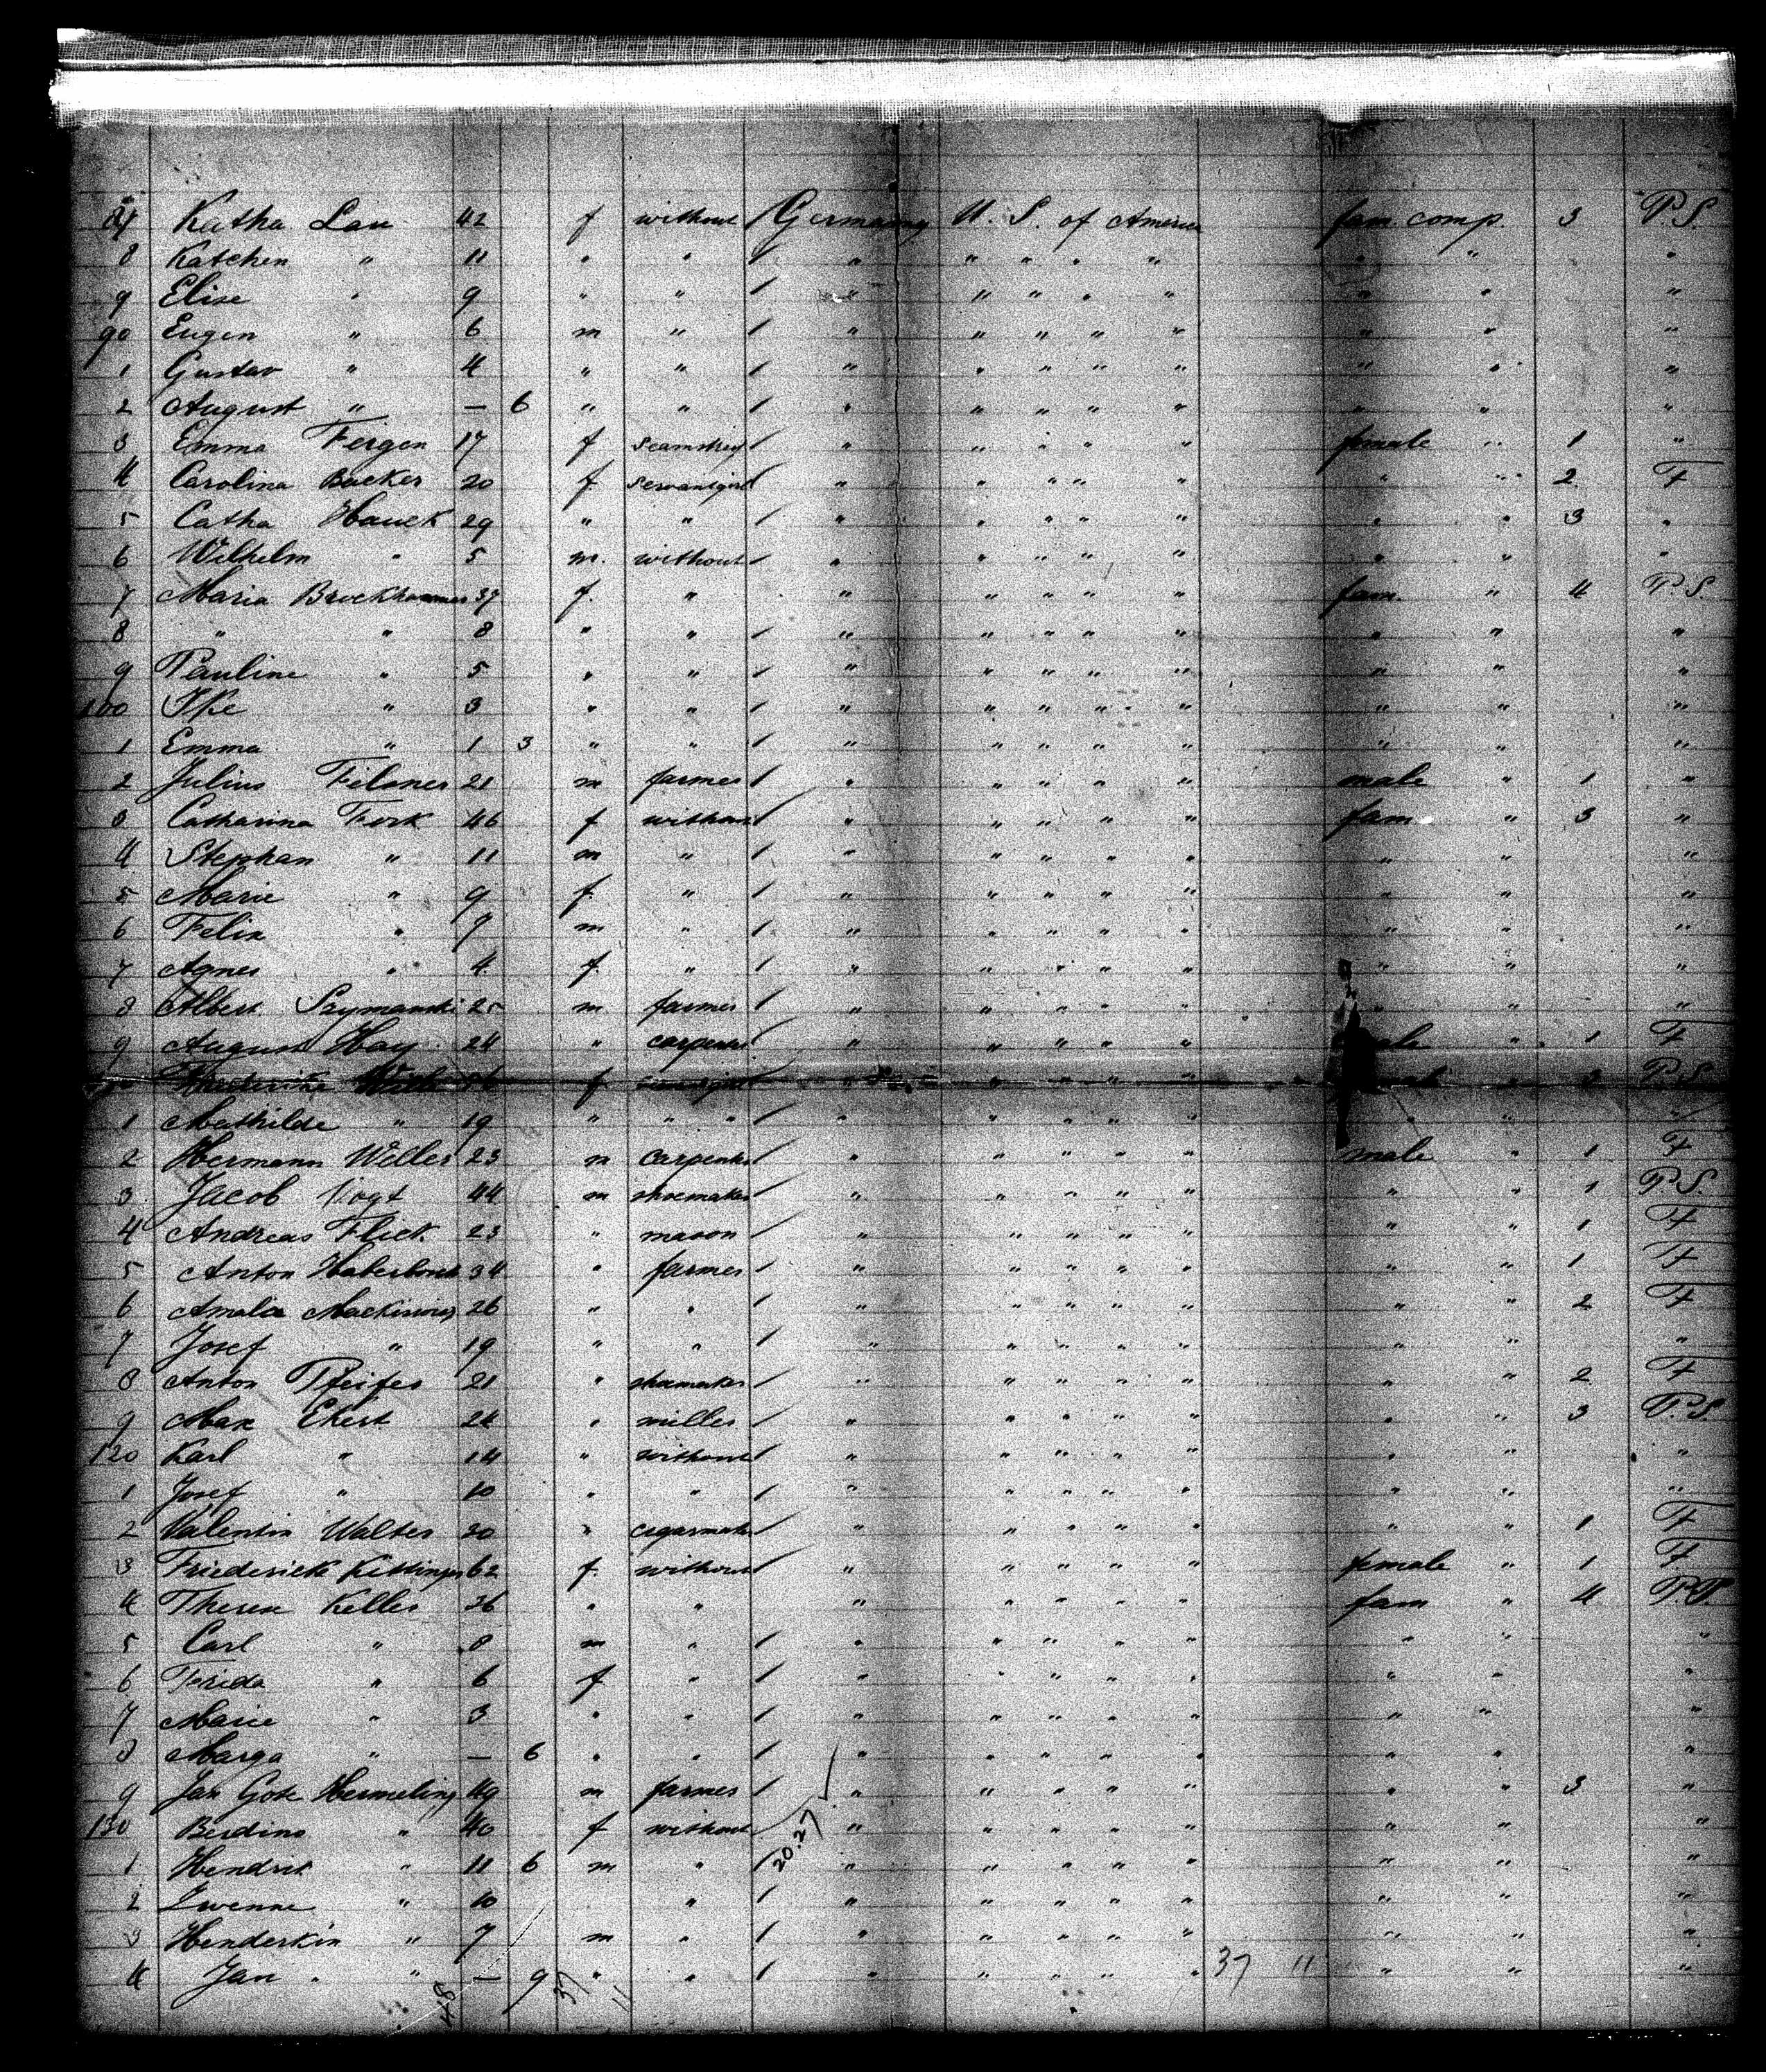 87 Katha Lau 42 f without / Germany U. S. of America fam. comp. 3 P.S.
8 Katchen " 11 " " / " " " " " " " "
9 Elise " 9 " " / " " " " " " " "
90 Eugen " 6 m " / " " " " " " " "
1 Gustav " 4 " " / " " " " " " " "
2 August " — 6 " " / " " " " " " " "
3 Emma Feigen 17 f / " " " " " female " 1 "
4 Carolina Backer 20 f servantgirl / " " " " " " " 2 F
5 Catha Hauck 29 " " / " " " " " " " 3 "
6 Wilhelm " 5 m. without / " " " " " " " "
7 Maria 37 f. " " " " " " fam. " 4 P.S.
8 " " 8 " " / " " " " " " " "
9 Pauline " 5 " " / " " " " " " " "
100 " 3 " " / " " " " " " " "
1 Emma " 1 3 " " / " " " " " " " "
2 Julius 21 m farmer / " " " " " male " 1 "
3 Catharina Fork 46 f without / " " " " " fam " 3 "
4 Stephan " 11 m " / " " " " " " " "
5 Marie " 9 f. " / " " " " " " " "
6 Felix " 7 m " / " " " " " " " "
7 Agnes " 4 f. " / " " " " " " " "
8 Albert Szymanski 25 m farmer / " " " " " " " "
9 August Hay 24 " / " " " " " " 1 F
f / " " " " " " 3 P.S.
1 Mathilde " 19 " " " / " " " " " "
2 Hermann Weller 23 m carpenter / " " " " " male " 1 F
3 Jacob Vogt 44 m shoemaker / " " " " " " " 1 P.S.
4 Andreas Flick 23 " mason / " " " " " " " 1 F
5 Anton 34 " farmer / " " " " " " " 1 F
6 Amalia 26 " " / " " " " " " " 2 F
7 Josef " 19 " " / " " " " " " " "
8 Anton Pfeifer 21 " shoemaker / " " " " " " " 2 F
9 Max Ekert 24 " miller / " " " " " " " 3 P.S.
120 Karl " 14 " without " " " " " " " "
1 Josef " 10 " " / " " " " " " " "
2 Valentin Walter 20 " cigarmaker / " " " " " " " 1 F
3 Friederick Kittinger 62 f. without / " " " " " female " 1 F
4 Therese Keller 26 " " " " " " " fam " 4
5 Carl " 8 m " / " " " " " " " "
6 Frieda " 6 f " / " " " " " " " "
7 Marie " 3 " " / " " " " " " " "
8 Marga " — 6 " " / " " " " " " " "
9 Jan Hermeling 49 m farmer / " " " " " " " 3 "
130 " 40 f without " " " " " " " "
1 Hendrik " 11 6 m " / 20.27 " " " " " " " "
2 Zwenne " 10 " / " " " " " " " "
3 Henderkin " 7 m " / " " " " " " " "
4 Jan " " — 9 " " / " " " " " 37 11 " " "
48 37 11